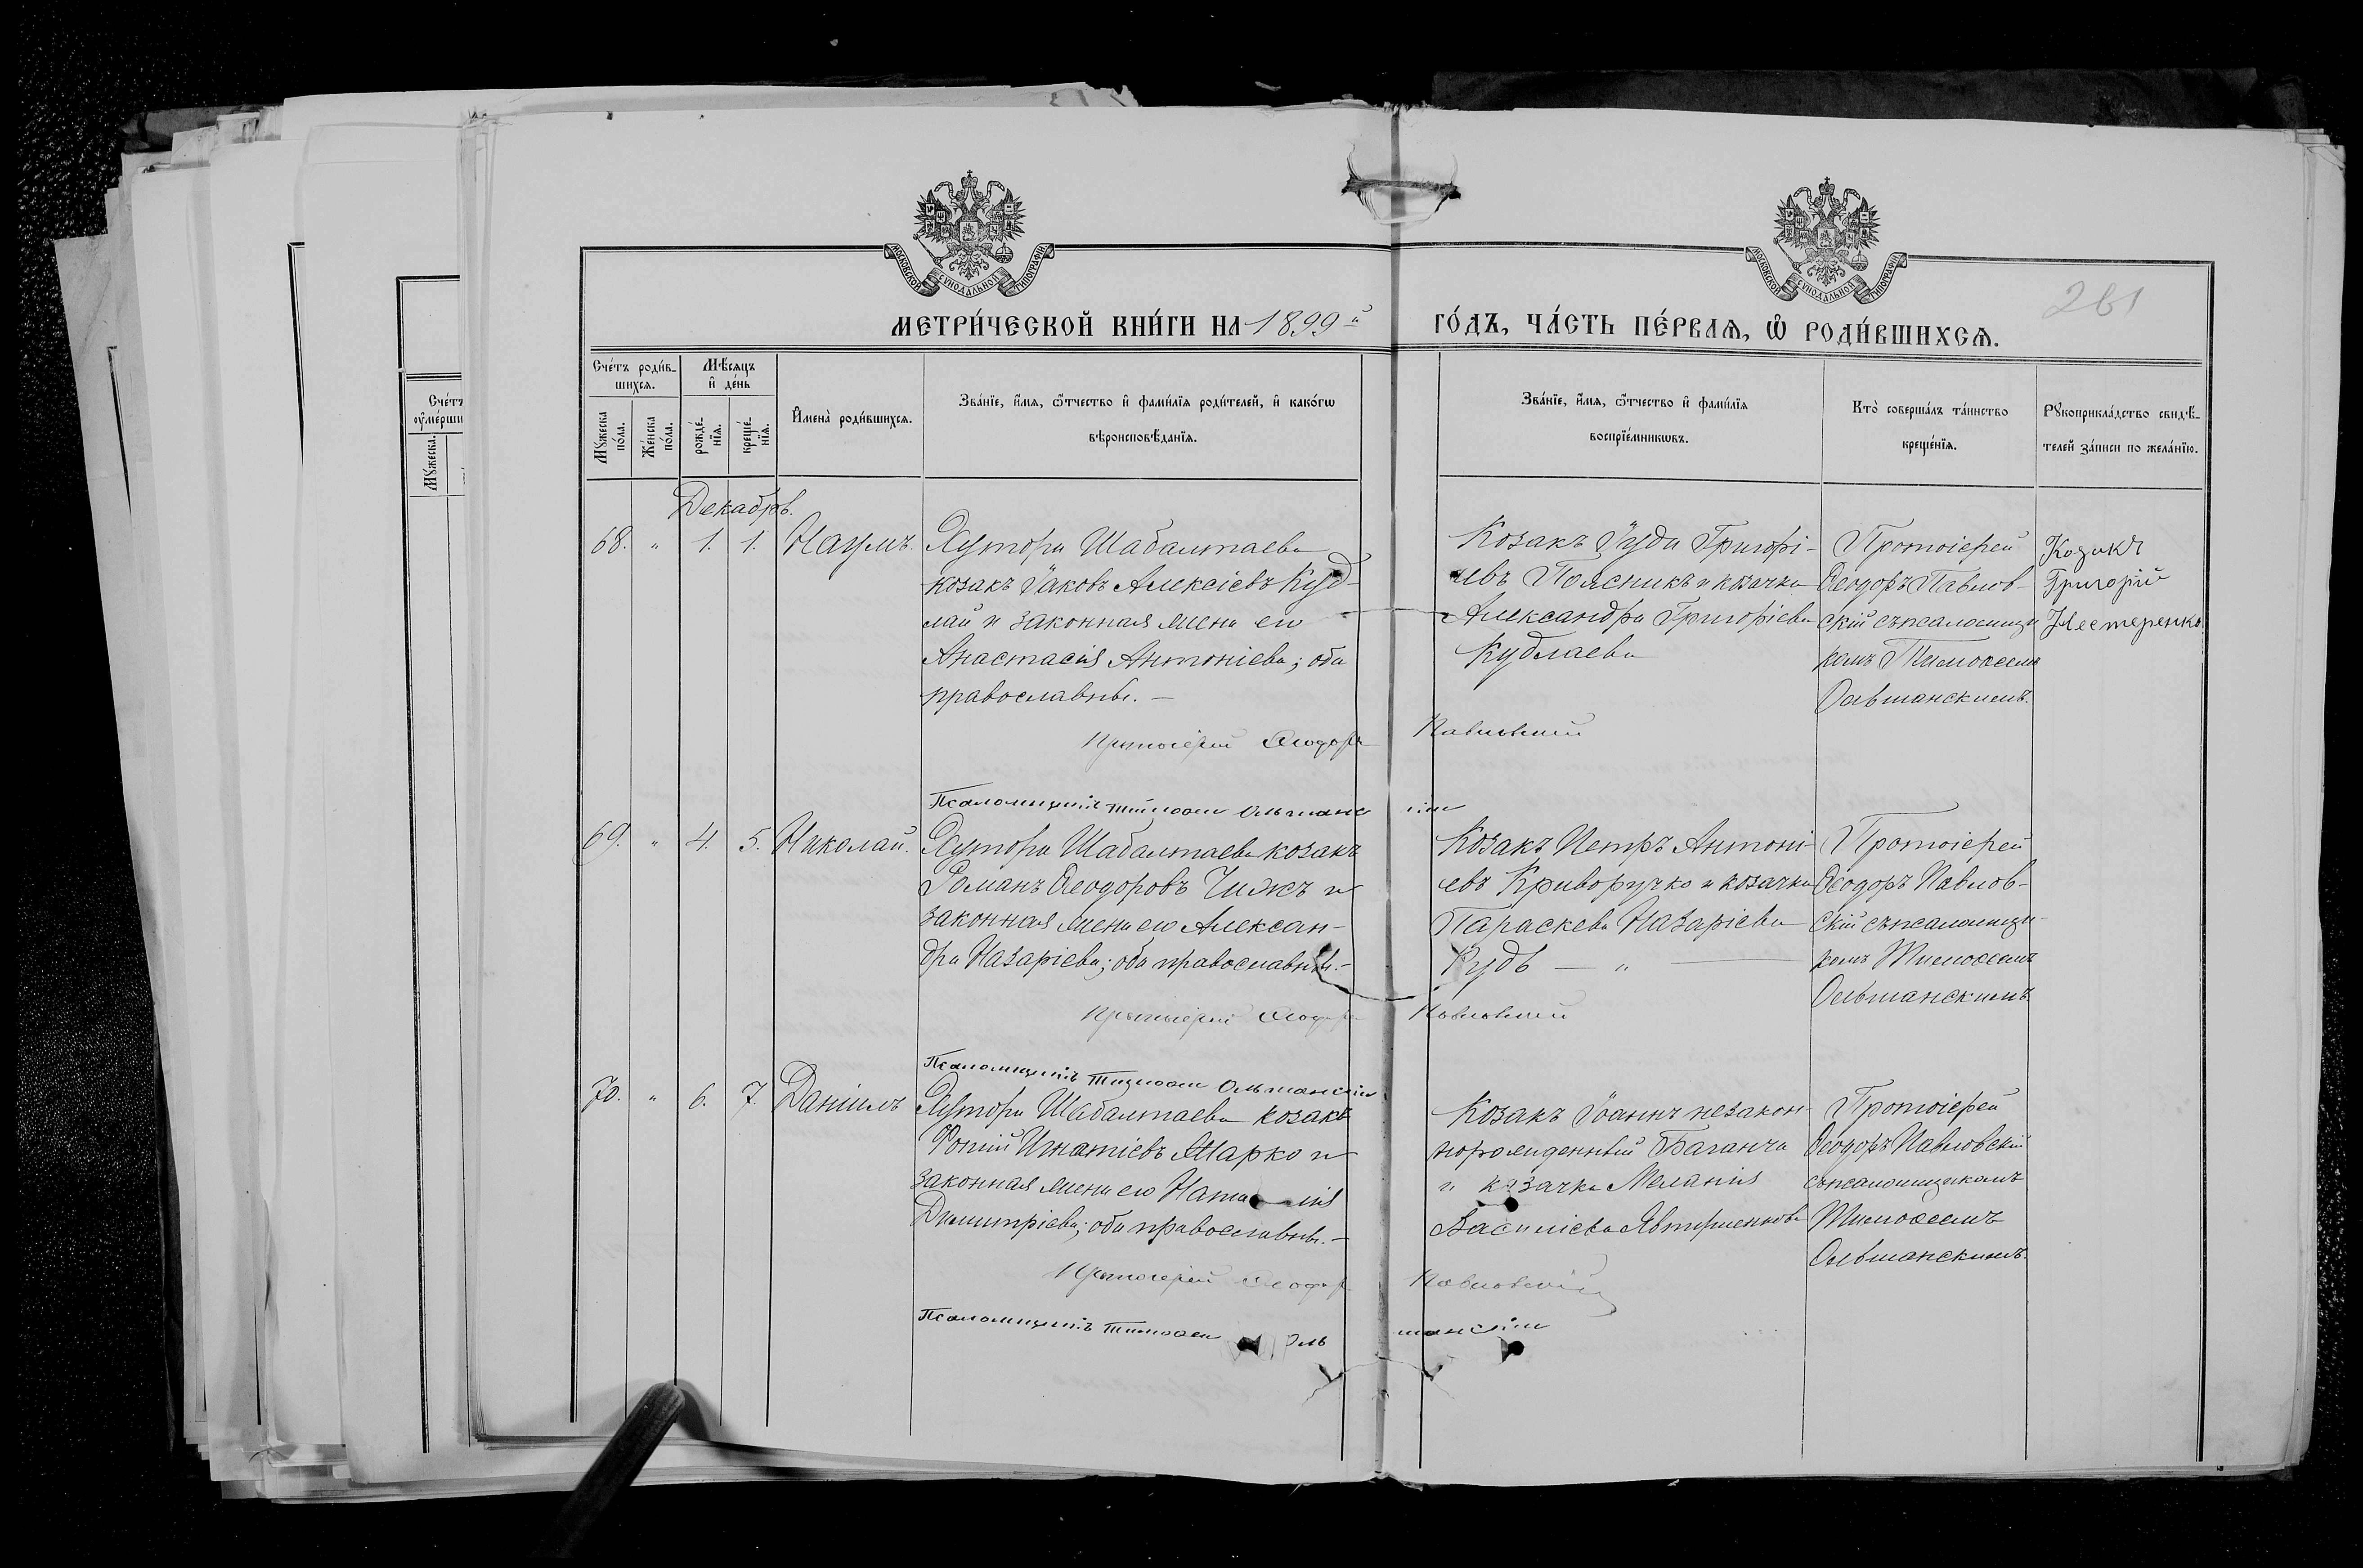 МОСКОВСКОЙ СУНОДАЛЬНОЙ ТИПОГРАФІИ
МОСКОВСКОЙ СУНОДАЛЬНОЙ ТИПОГРАФІИ
261
МЕТРИ́ЧЕСКОЙ КНИ́ГИ НА 1899й ГО́ДЪ, ЧА́СТЬ ПЕ́РВАѦ, Ѿ РОДИ́ВШИХСѦ.
Сче́тъ роди́в-
шихсѧ.
Мѣ́сѧцъ
и҆ де́нь
Мꙋ́жеска
по́ла.
Же́нска
по́ла.
рожде́-
нїѧ.
креще́-
нїѧ.
И҆мена̀ роди́вшихсѧ.
Зва́нїе, и҆́мѧ, ѻ҆́тчество и҆ фами́лїѧ роди́телей, и҆ како́гѡ
вѣроисповѣ́данїѧ.
Зва́нїе, и҆́мѧ, ѻ҆́тчество и҆ фами́лїѧ
воспрїе́мникѡвъ.
Кто̀ соверша́лъ та́инство
креще́нїѧ.
Рꙋкоприкла́дство свидѣ́-
телей за́писи по жела́нїю.
Сче́тъ
ᲂу҆ме́рши
Мꙋ́жеска.
Декабрь.
68. " 1. 1. Наумъ.
Хутора Шабалтаева
козакъ Іаковъ Алексіевъ Куд-
лай и законная жена его
Анастасія Антоніева; оба
православны. —
Козакъ Іуда Григорі-
евъ Поясникъ и козачка
Александра Григоріева
Кудлаева
Протоіерей
Ѳеодоръ Павлов-
скій съ псаломщи-
комъ Тимоѳеемъ
Ольшанскимъ.
Козакъ
Григорій
Нестеренко.
Протоіерей Ѳеодоръ Павловскій
Псаломщикъ Тимоѳей Ольшанскій
69. " 4. 5. Николай.
Хутора Шабалтаева козакъ
Романъ Ѳеодоровъ Чижъ и
законная жена его Алексан-
дра Назаріева; оба православны. —
Козакъ Петръ Антоні-
евъ Криворучко и козачка
Параскева Назаріева
Кудь — " —
Протоіерей
Ѳеодоръ Павлов-
скій съ псаломщи-
комъ Тимоѳеемъ
Ольшанскимъ.
Протоіерей Ѳеодоръ Павловскій
Псаломщикъ Тимоѳей Ольшанскій
70. " 6. 7. Даніилъ
Хутора Шабалтаева козакъ
Фотій Игнатіевъ Марко и
законная жена его
Димитріева; оба православны. —
Козакъ Іоаннъ незакон-
норожденный Баганча
и козачка Меланія
Василіева
Протоіерей
Ѳеодоръ Павловскій
съ псаломщикомъ
Тимоѳеемъ
Ольшанскимъ.
Протоіерей Ѳеодоръ Павловскій
Псаломщикъ Тимоѳей Ольшанскій